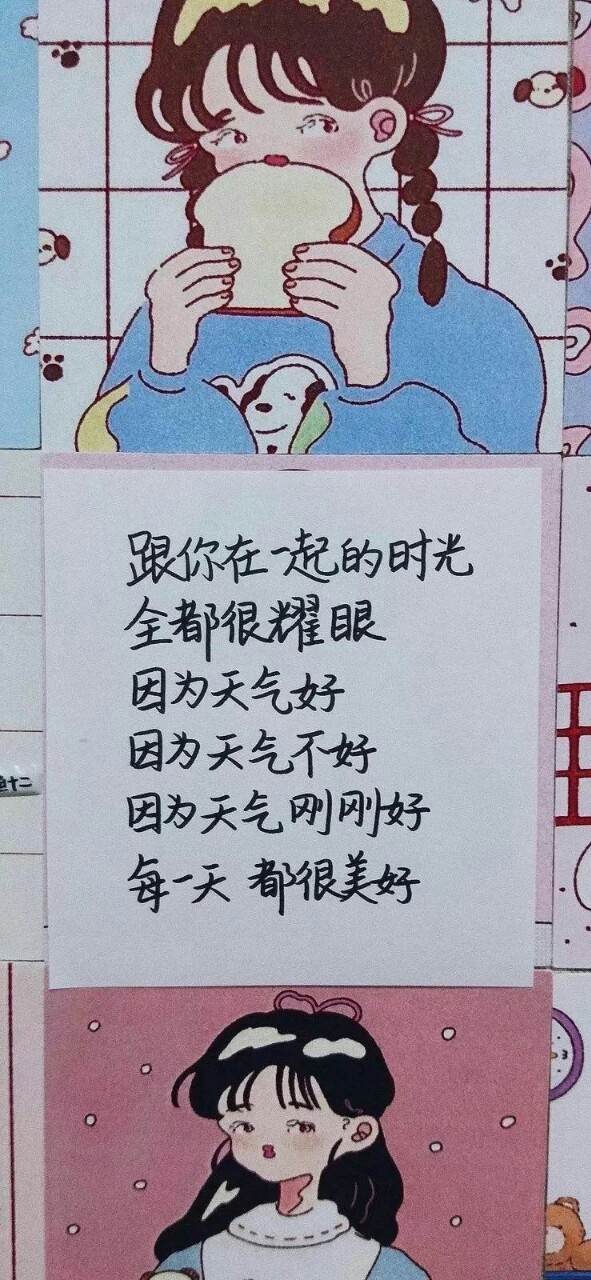 跟你在一起的时光
全都很耀眼
因为天气好
因为天气不好
因为天气刚刚好
每一天 都很美好
十二